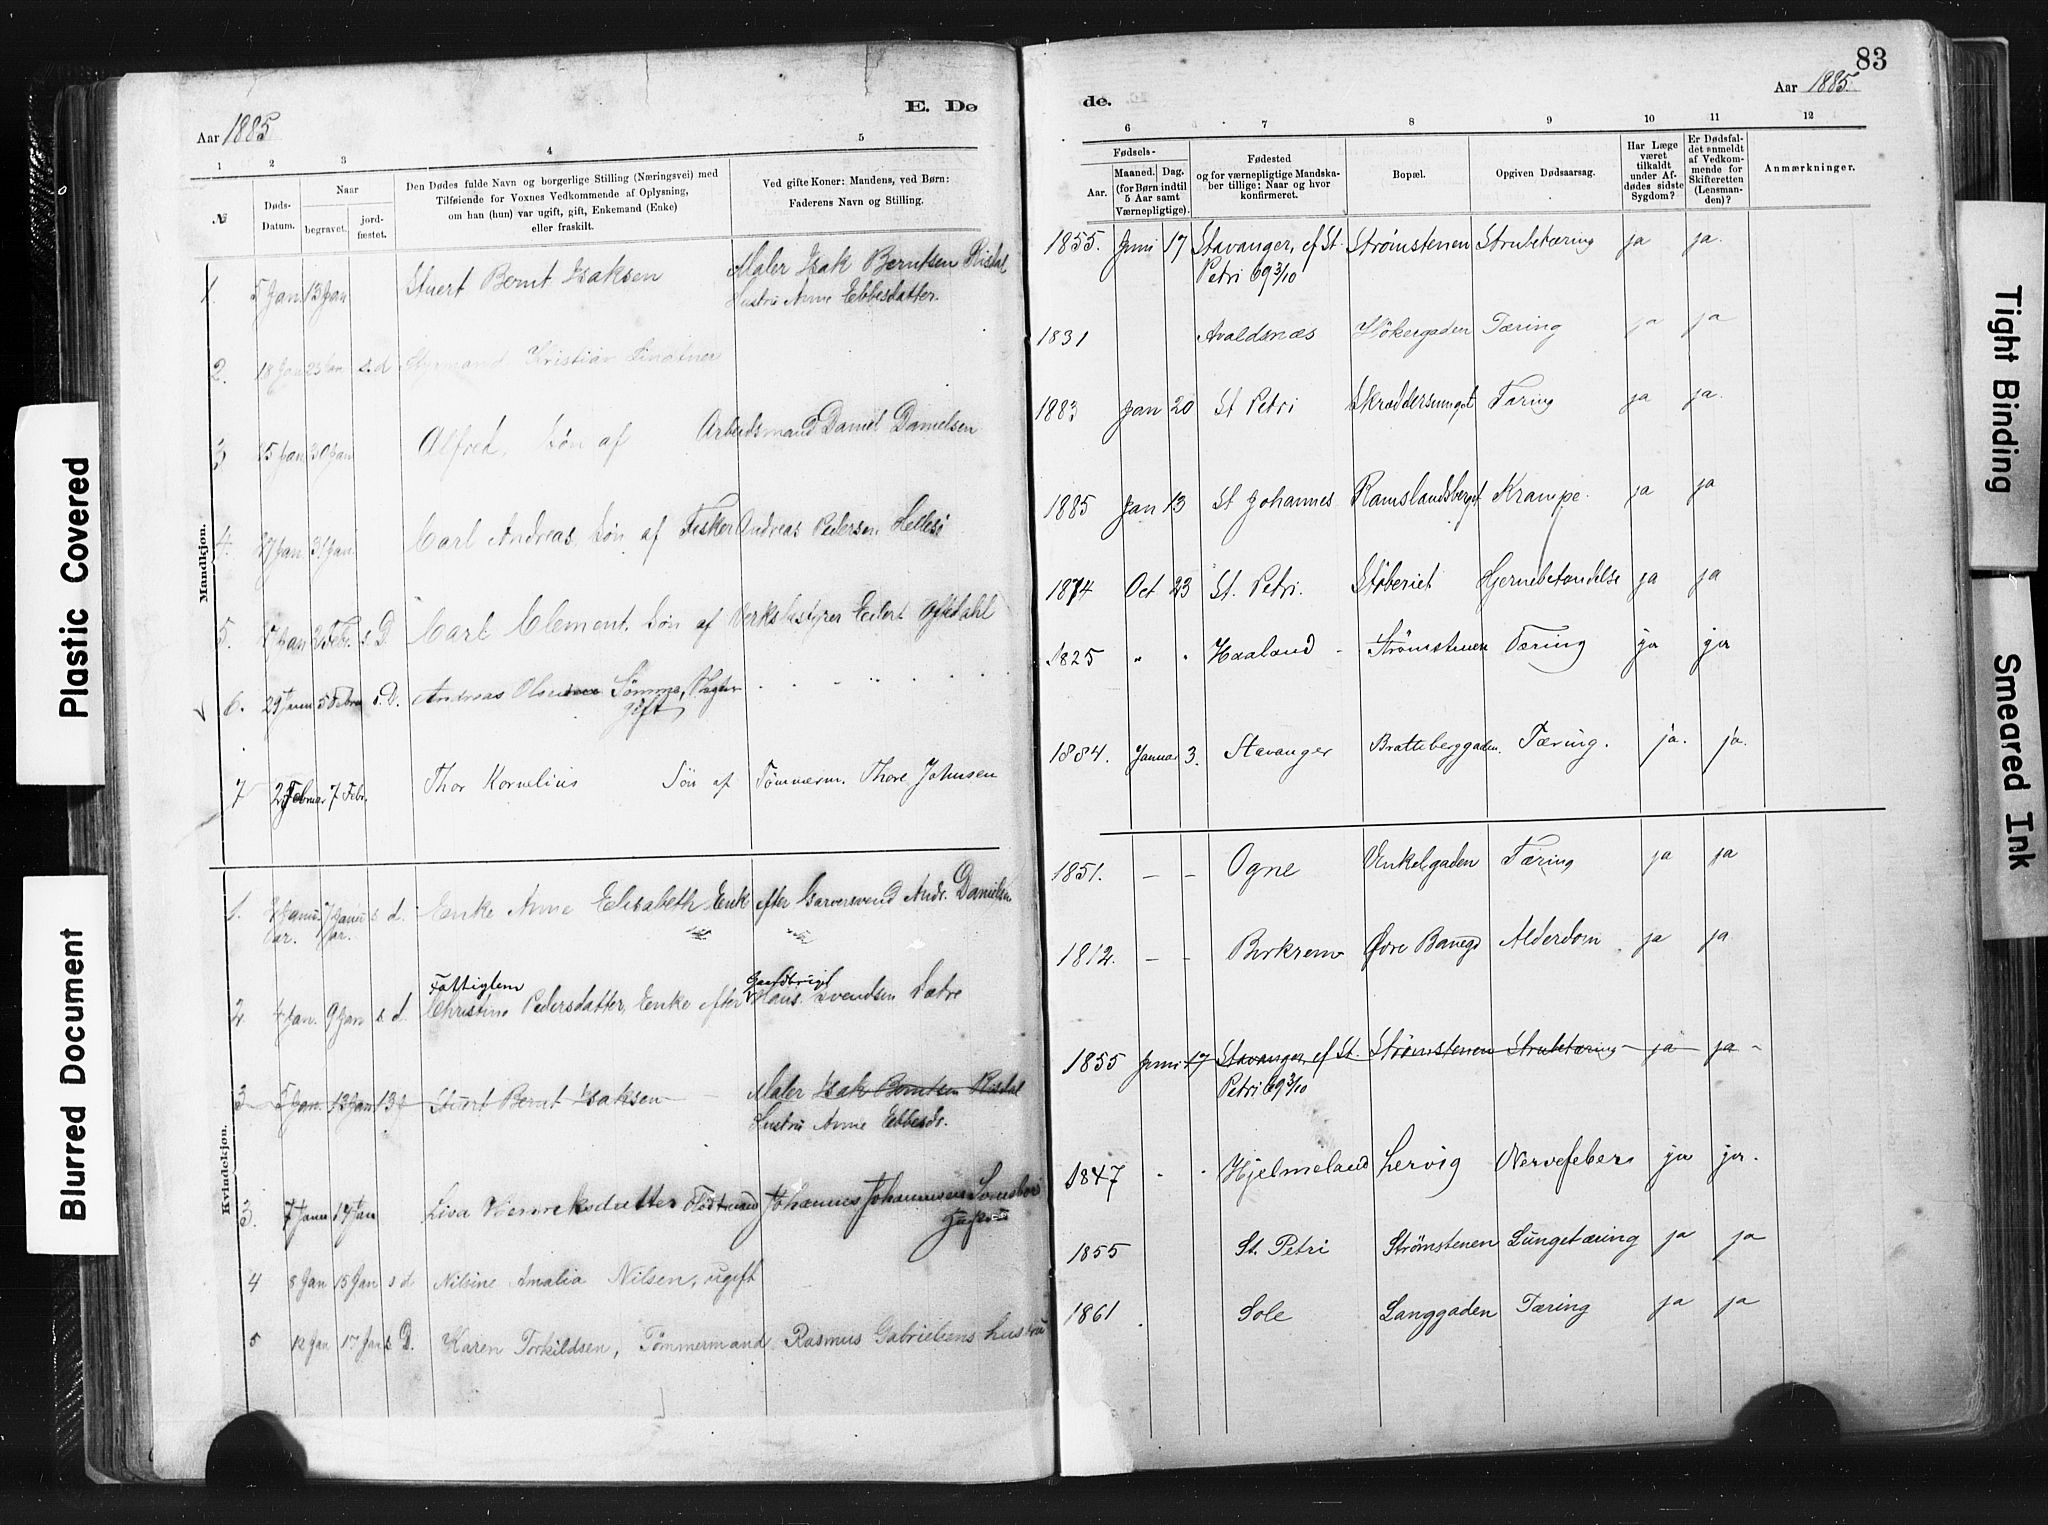 83
Aar 1885
E. Dø
de.
Aar 1885.
1 2 3 4 5
6 7 8 9 10 11 12
№
Døds-
Datum.
Naar
begravet.
jord-
fæstet.
Den Dødes fulde Navn og borgerlige Stilling (Næringsvei) med
Tilføiende for Voxnes Vedkommende af Oplysning,
om han (hun) var ugift, gift, Enkemand (Enke)
eller fraskilt.
Ved gifte Koner: Mandens, ved Børn:
Faderens Navn og Stilling.
Fødsels-
Aar.
Maaned. Dag.
(for Børn indtil
5 Aar samt
Værnepligtige).
Fødested
og for værnepligtige Mandska-
ber tillige: Naar og hvor
konfirmeret.
Bopæl.
Opgiven Dødsaarsag.
Har Læge
været
tilkaldt
under Af-
dødes sidste
Sygdom?
Er Dødsfal-
det anmeldt
af Vedkom-
mende for
Skifteretten
(Lensman-
den)?
Anmærkninger.
Mandkjøn.
1. 5 Jan 13 Jan Stuert Bernt Isaksen Maler Isak Berntsen Ristal
Hustru Anne Ebbesdatter.
1855. Juni 17 Stavanger, cf St. Strømstenen Strubetæring ja ja.
Petri 69 3/10
2. 18 Jan 25 Jan s. d Styrmand Kristian
1831 Avaldsnæs Høkergaden Tæring ja ja
3 15 Jan 30 Jan Alfred, Søn af Arbeidsmand Daniel Danielsen
1883 Jan 20 St Petri Skræddersmuget Tæring ja ja.
4. 27 Jan 31 Jan Carl Andreas, Søn af Fisker Andreas Pedersen Hellesö
1885 Jan 13 St Johannes Ramslandsberget Krampe. ja ja
5. 27 Jan 2 Febr. s. D Carl Clement, Søn af Verksbestyrer Eilert Oftedahl
1874 Oct 23 St. Petri. Støberiet Hjernebetændelse ja ja
6. 29 Janu 5 Febru s. D. Andreas Olsen Sömme,
gift
1825 " " Haaland Strømstenen Tæring ja ja
7 2 Februar 7 Febr. Thor Kornelius Søn af Tømmerm. Thore Johnsen
1884. Januar 3. Stavanger Bratteberggaden. Tæring. ja. ja.
Kvindekjøn.
1. Janu- 7 Janu s d. Enke Anne Elisabeth Enk efter Garversvend Andr. Danielsen
ar. ar.
1851. — — Ogne Vinkelgaden Tæring ja ja
Fattiglem Gaardbruger
2. 4 Jan. 9 Jan s. d. Christine Pedersdatter, Enke efter Hans Svendsen Sætre
1812. — — Birkrem Øvre Baneg Alderdom ja ja
3 5 Jan. 13 Jan 13 J Stuert Bernt Isaksen Maler Isak Berntsen Ristal
Hustru Anne Ebbesdr.
1855 Juni 17 Stavanger, cf St. Strømstenen Strubetæring ja ja
Petri 69 3/10
3. 7 Janu 14 Jan Lisa Johannes Johannesen
1847 " " Hjelmeland Lervig Nervefeber ja ja.
4 8 Jan 15 Jan s d Nilsine Amalia Nilsen, ugift
1855 St. Petri Strømstenen Lungetæring ja ja
5 12 Jan 17 Jan s D. Karen Torkildsen, Tømmermand Rasmus Gabrielsens hustru
1861 Sole Langgaden Tæring ja ja
Plastic Covered
Blurred Document
Tight Binding
Smeared Ink